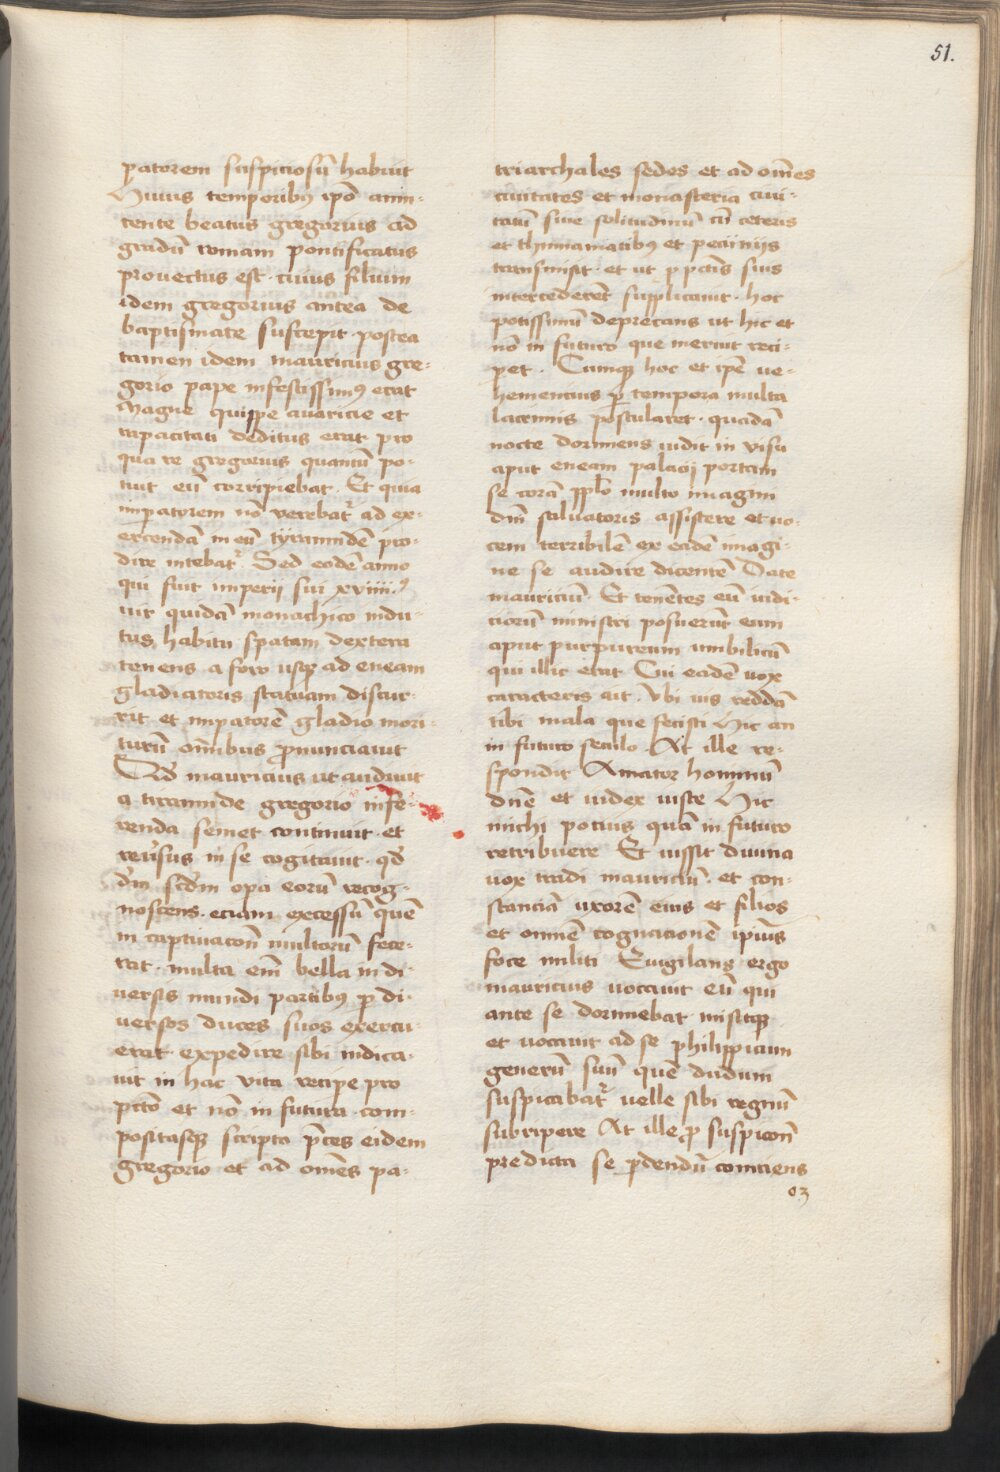 51.
patorem suspiciosū habuit
Huius temporibꝰ ipō anni-
tente beatus gregorius ad
gradū romani pontificatus
prouectus est · cuius filium
idem gregorius antea de
baptismate suscepit · postea
tamen idem mauricius gre-
gorio pape infestissimꝰ erat
Magne quippe auaricie et
rapacitati deditus erat pro
qua re gregorius quantū po-
tuit eū corripiebat · Et quia
impatorem nō verebat̄ ad ex-
ercendā in eū tyrannidē pro-
dire intēbat̄ Sed eodē anno
qui fuit imperij sui xviiii ·
uir quidā monachico indu-
tus habitu spatam dextera
tenens a foro usqꝫ ad eneam
gladiatoris statuam discur-
rit et impatorē gladio mori-
turū om̄ibus ꝓnunciauit
Qd̄ mauricius ut audiuit
a tirannide gregorio infe-
renda semet continuit · et
reūsus in se cogitauit · qd̄
dm̄ scdm̄ opa eorū recog-
noscens · etiam excessū quē
in captiuacōn̄ multorū fece-
rat · multa em̄ bella in di-
uersis mundi partibꝰ p di-
uersos duces suos exercu-
erat expedire sibi iudica-
uit in hac vita recipe pro
pctō et nō in futura · com-
positasqꝫ scripto pces eidem
gregorio et ad om̄es pa-
triarchales sedes et ad om̄es
ciuitates et monasteria ciui-
tatū siue solitudinū cū ceteris
et thimiamatibꝰ et pecūnijs
transmisit · et ut p pctis̄ suis
intercederēt supplicauit · hoc
potissimū deprecans ut hic et
nō in futuro que meruit reci-
pet · Cumqꝫ hoc et ipē ue-
hementius p tempora multa
lacrimis postularet · quadā
nocte dormiens uidit in visu
aput eneam palacij portam
se corā pplō multo imagini
dnī saluatoris assistere et uo-
cem terribilē ex eadē imagi-
ne se audire dicentē Date
mauriciū · Et tenētes eū iudi-
ciorū ministri posuerūt eum
aput purpureum umbilicū
qui illic erat Cui eadē uox
caracteris ait · Vbi uis reddā
tibi mala que fecisti hic an
in futuro seculo · At ille re-
spondit Amator hominū
dnē et iudex iuste Hic
michi pocius quā in futuro
retribuere Et iussit diuina
uox tradi mauriciū · et con-
stanciā uxorē eius et filios
et omnē cognacionē ipius̄
foce militi Euigilans ergo
mauricius uocauit eū qui
ante se dormiebat misitqꝫ
et uocauit ad se philippicum
generū suū quē dudum
suspicabat̄ uelle sibi regnū
subripere At ille ꝓ suspicōn̄
predicta se pdendū coniciens